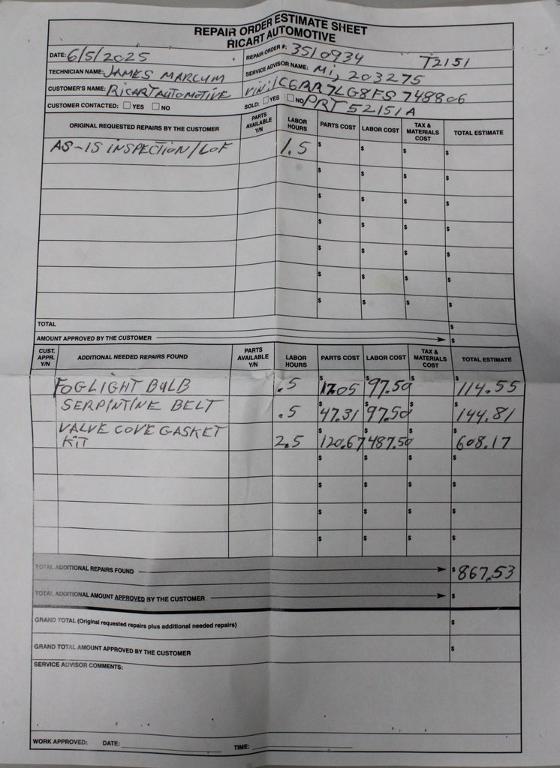 REPAIR ORDER ESTIMATE SHEET
RICART AUTOMOTIVE
DATE: 6/5/2025 REPAIR ORDER #: 3510934 T2151
TECHNICIAN NAME: JAMES MARCUM SERVICE ADVISOR NAME: Mi, 203275
CUSTOMER'S NAME: RICART AUTOMOTIVE VIN: 1C6RR7LG8FS748806
CUSTOMER CONTACTED: YES NO SOLD: YES NO PRT 52151A
ORIGINAL REQUESTED REPAIRS BY THE CUSTOMER PARTS AVAILABLE Y/N LABOR HOURS PARTS COST LABOR COST TAX & MATERIALS COST TOTAL ESTIMATE
AS-IS INSPECTION/LOF 1.5 $ $ $ $
$ $ $ $
$ $ $ $
$ $ $ $
$ $ $ $
$ $ $ $
$ $ $ $
TOTAL $
AMOUNT APPROVED BY THE CUSTOMER $
CUST. APPR. Y/N ADDITIONAL NEEDED REPAIRS FOUND PARTS AVAILABLE Y/N LABOR HOURS PARTS COST LABOR COST TAX & MATERIALS COST TOTAL ESTIMATE
FOGLIGHT BULB .5 $17.05 $97.50 $ $114.55
SERPINTINE BELT .5 $47.31 $97.50 $ $144.81
VALVE COVE GASKET
KIT 2.5 $120.67 $487.50 $ $608.17
$ $ $ $
$ $ $ $
$ $ $ $
$ $ $ $
TOTAL ADDITIONAL REPAIRS FOUND $867.53
TOTAL ADDITIONAL AMOUNT APPROVED BY THE CUSTOMER $
GRAND TOTAL (Original requested repairs plus additional needed repairs) $
GRAND TOTAL AMOUNT APPROVED BY THE CUSTOMER $
SERVICE ADVISOR COMMENTS:
WORK APPROVED: DATE: TIME: